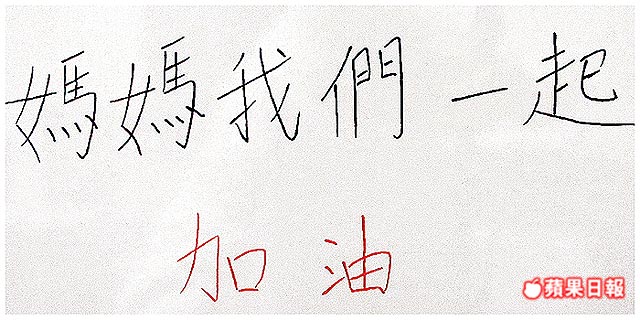 媽媽我們一起
加油
蘋果日報